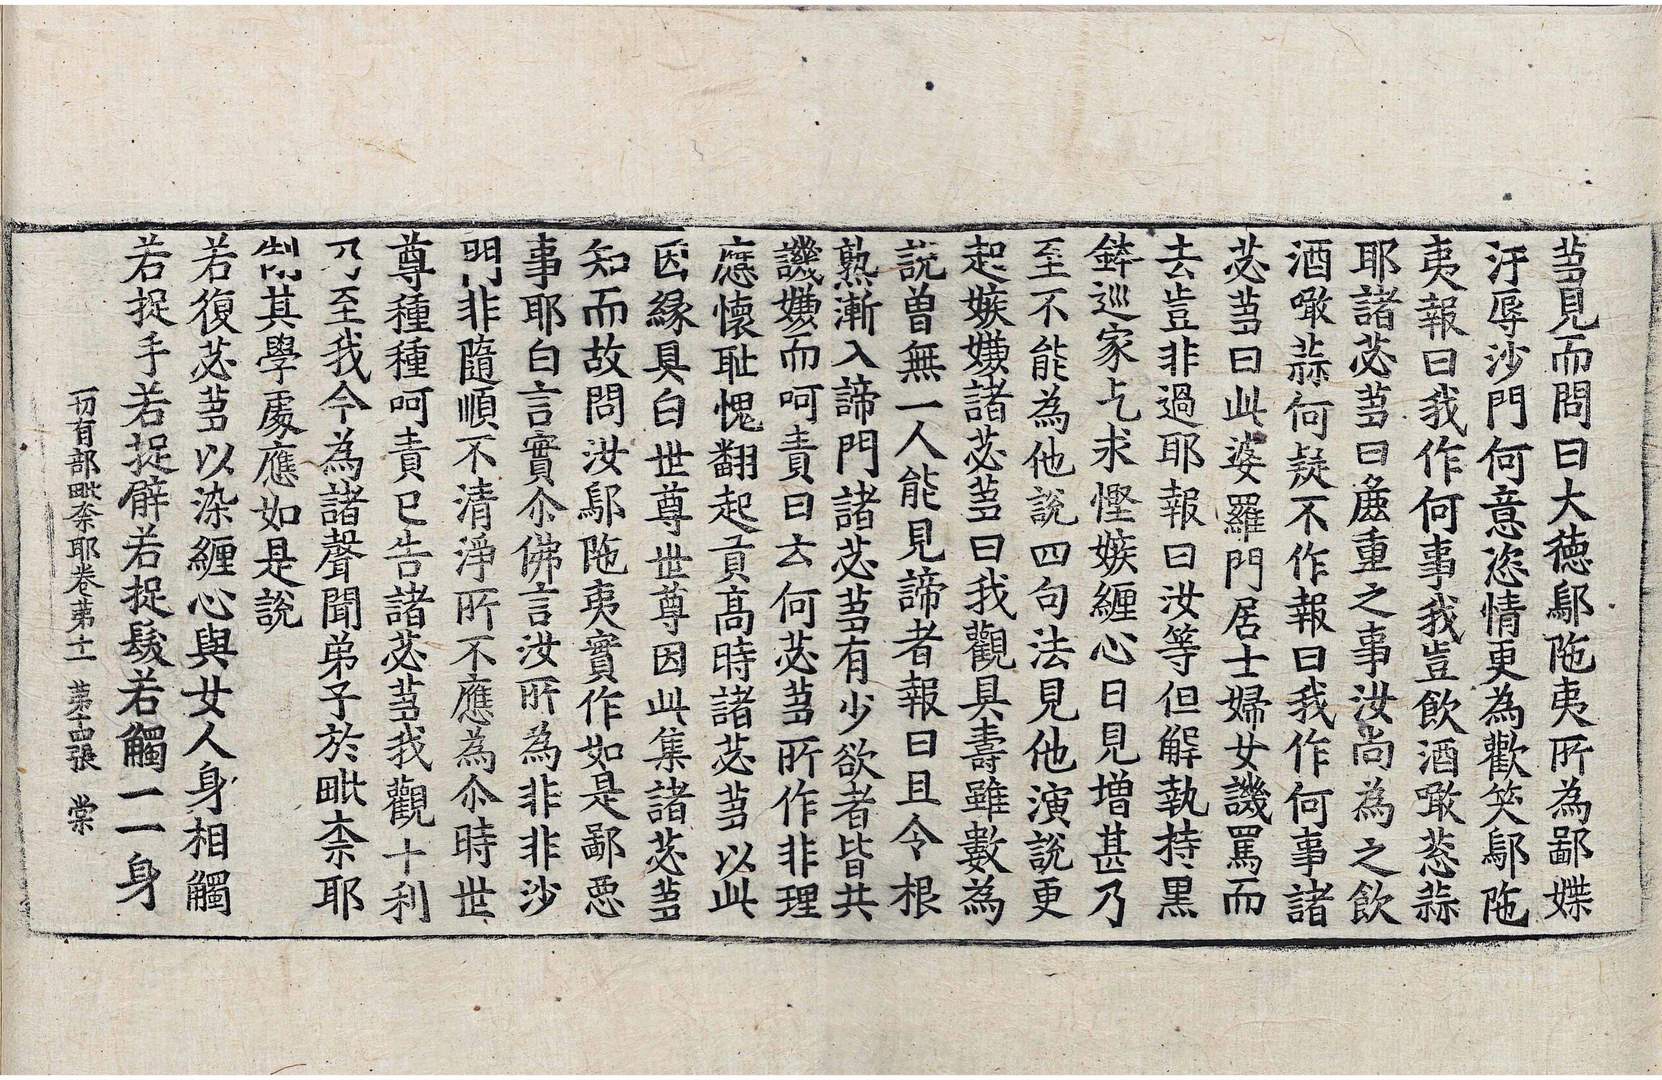 苾見而問曰大徳鄔陁夷所為鄙媟
汙辱沙門何意恣情更為歡笑鄔陁
夷報曰我作何事我豈飲酒噉葱蒜
耶諸苾芻曰麁重之事汝尚為之飲
酒噉蒜何疑不作報曰我作何事諸
苾芻曰此婆羅門居士婦女譏罵而
去豈非過耶報曰汝等但解執持黒
鉢巡家乞求慳嫉纏心日見增甚乃
至不能為他說四句法見他演說更
起嫉嫌諸苾芻曰我觀具壽雖數為
說曽無一人能見諦者報曰且令根
熟漸入諦門諸苾芻有少欲者皆共
譏嫌而呵責曰云何苾芻所作非理
應懷耻愧翻起貢髙時諸苾芻以此
因緣具白世尊世尊因此集諸苾芻
知而故問汝鄔陁夷實作如是鄙惡
事耶白言實尒佛言汝所為非非沙
門非隨順不清淨所不應為尒時世
尊種種呵責已告諸苾芻我觀十利
乃至我今為諸聲聞弟子於毗柰耶
制其學處應如是說
若復苾芻以染纏心與女人身相觸
若捉手若捉臂若捉髮若觸一一身
一切有部毗柰耶卷第十一 第十四張 棠